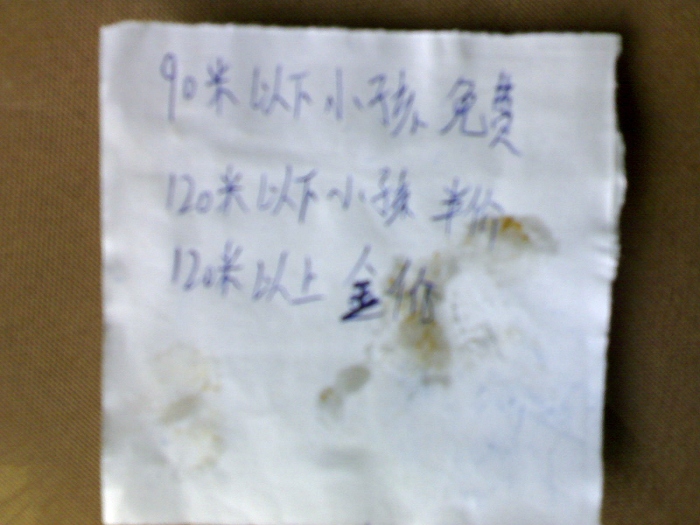 90米以下小孩免费
120米以下小孩半价
120米以上全价